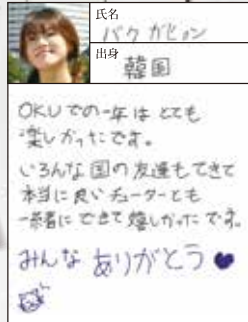 氏名
パク ガヒョン
出身
韓国
OKUでの一年はとても
楽しかったです。
いろんな国の友達もできて
本当に良いチューターとも
一緒にできて嬉しかったです。
みんなありがとう